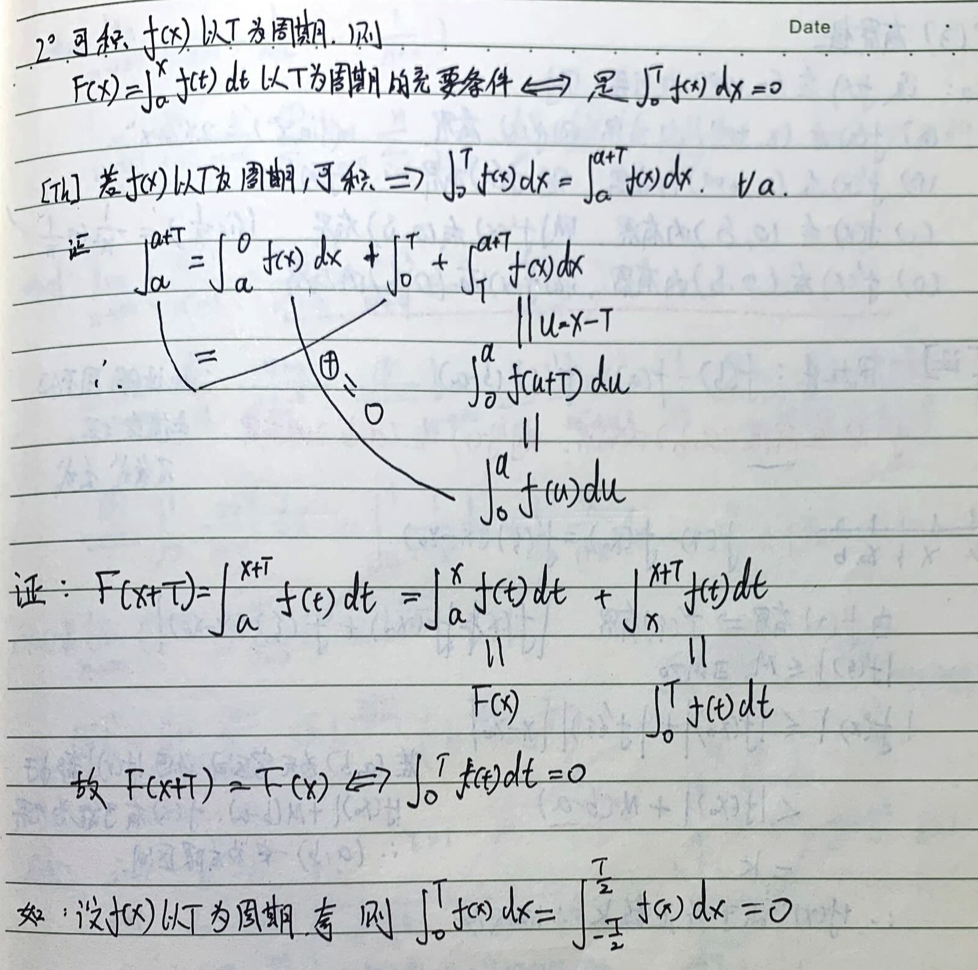 Date
2° 可积 f(x) 以T为周期. 则
F(x)=∫_a^x f(t) dt 以T为周期的充要条件 ⟺ 是 ∫_0^T f(x) dx = 0
[Th] 若f(x)以T为周期,可积 ⟹ ∫_0^T f(x) dx = ∫_a^{a+T} f(x) dx. ∀a.
证 ∫_a^{a+T} = ∫_a^0 f(x) dx + ∫_0^T + ∫_T^{a+T} f(x) dx
|| u=x-T
∴ = ⊕ = 0 ∫_0^a f(u+T) du
||
∫_0^a f(u) du
证: F(x+T)=∫_a^{x+T} f(t) dt = ∫_a^x f(t) dt + ∫_x^{x+T} f(t) dt
|| ||
F(x) ∫_0^T f(t) dt
故 F(x+T) = F(x) ⟺ ∫_0^T f(t) dt = 0
如: 设f(x)以T为周期 奇 则 ∫_0^T f(x) dx = ∫_{-T/2}^{T/2} f(x) dx = 0